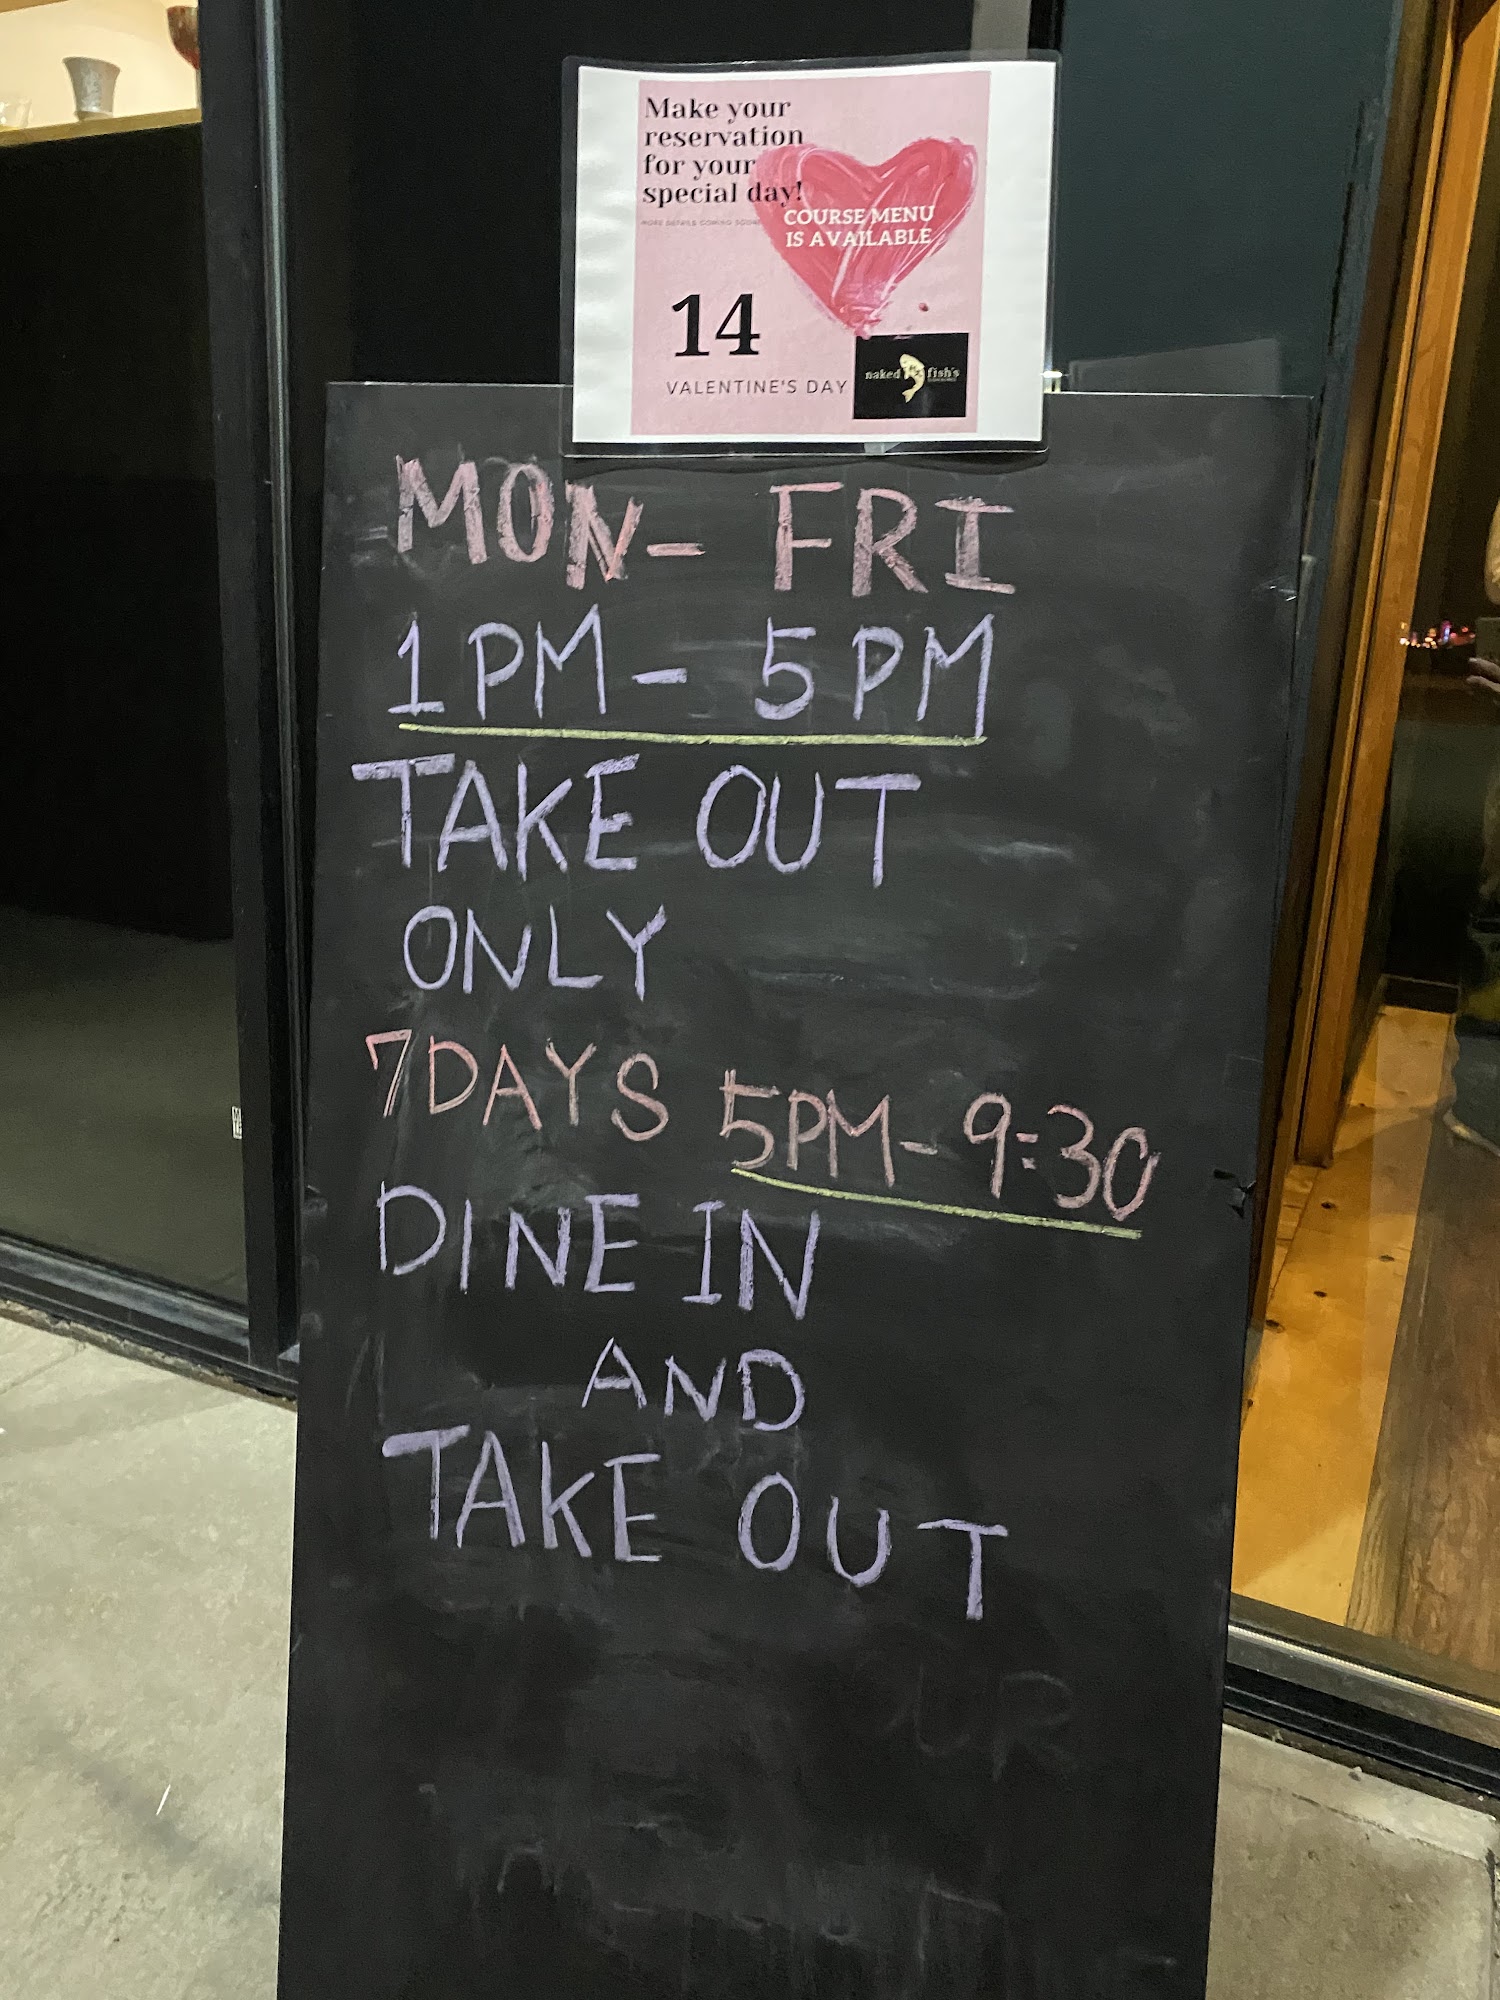 Make your
reservation
for your
special day!
MORE DETAILS COMING SOON
COURSE MENU
IS AVAILABLE
14
VALENTINE'S DAY
naked fish's
MON- FRI
1PM- 5PM
TAKE OUT
ONLY
7DAYS 5PM-9:30
DINE IN
AND
TAKE OUT